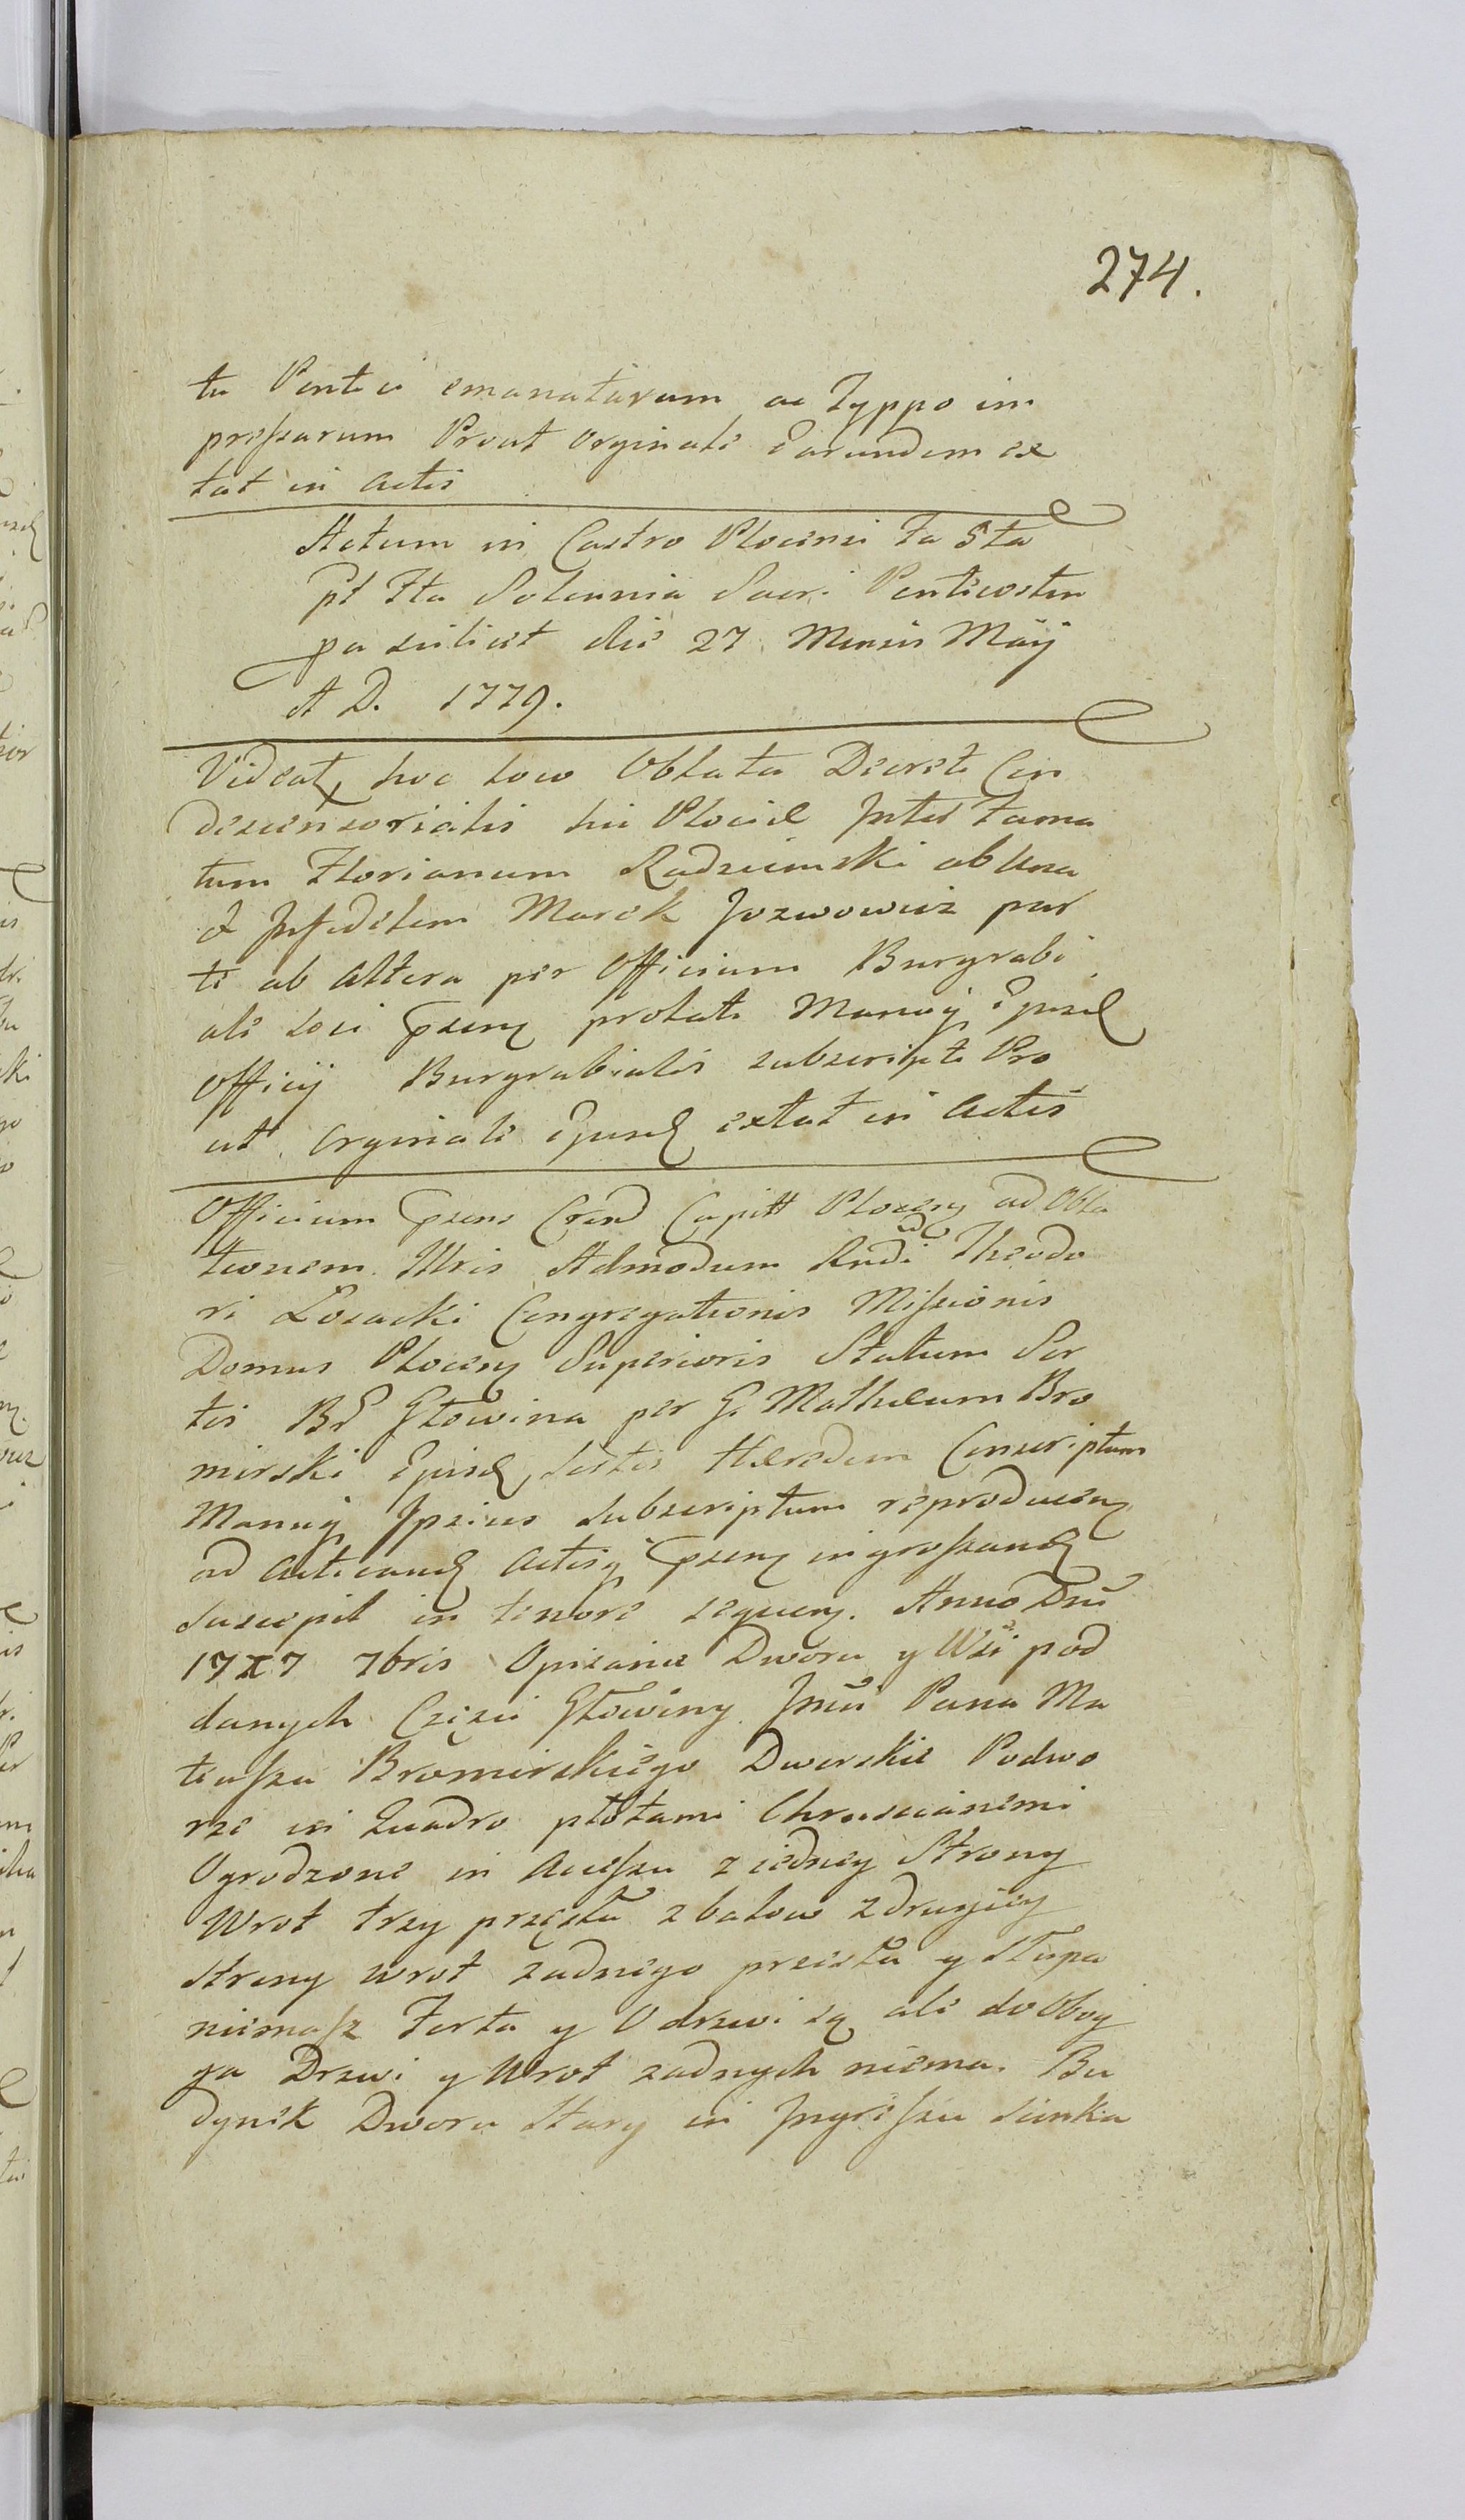 274.
ta Penti emanatarum ac Typpo im
pressarum Prout Orginale Earundem ex
tat in Actis
Actum in Castro Plocensi Fa 5ta
pt Fta Solennia Sacri Penticosten
pa scilicet die 27 Mensis Maij
A D. 1779.
Videat hoc loco Oblata Decreti Con
descensorialis hui Plociae Inter Fama
tum Florianum Radziemski ab Una
& Infidelem Marek Jozwowicz par
te ab Altera per Officium Burgrabi
ale Loci Psens prolati Manuq Ejusd
Officij Burgrabialis subscripti Pro
ut Orginale Ejusd extat in Actis
Officium Psens Crend Capitt Plocens ad Obla
tionem Illris Admodum Rndi Theodo
ri Losacki Congregationis Missionis
Domus Plocens Superioris Statum Sor
tis Br Głowina per G. Matheum Bro
mirski Ejusd Sortis Haeredem Conscriptum
Manuq Ipsius Subscriptum reproducens
ad Acticand Actisq Psens ingrossand
suscepit in tenore sequens. Anno Dni
17X7 7bris Opisanie Dworu y Wsi pod
danych Części Głowiny Jmci Pana Ma
teusza Bromirskiego Dworskie Podwo
rze in Quadro płotami Chruscianemi
Ogrodzone in Acessu z iedney Strony
Wrot trzy przęsła z balow z drugiey
strony wrot zadnego przesła y słupa
niemasz Forta y Odrzwi są ale do Oboy
ga Drzwi y Wrot zadnych niema. Bu
dynek Dworu Stary in Ingressu Sionka